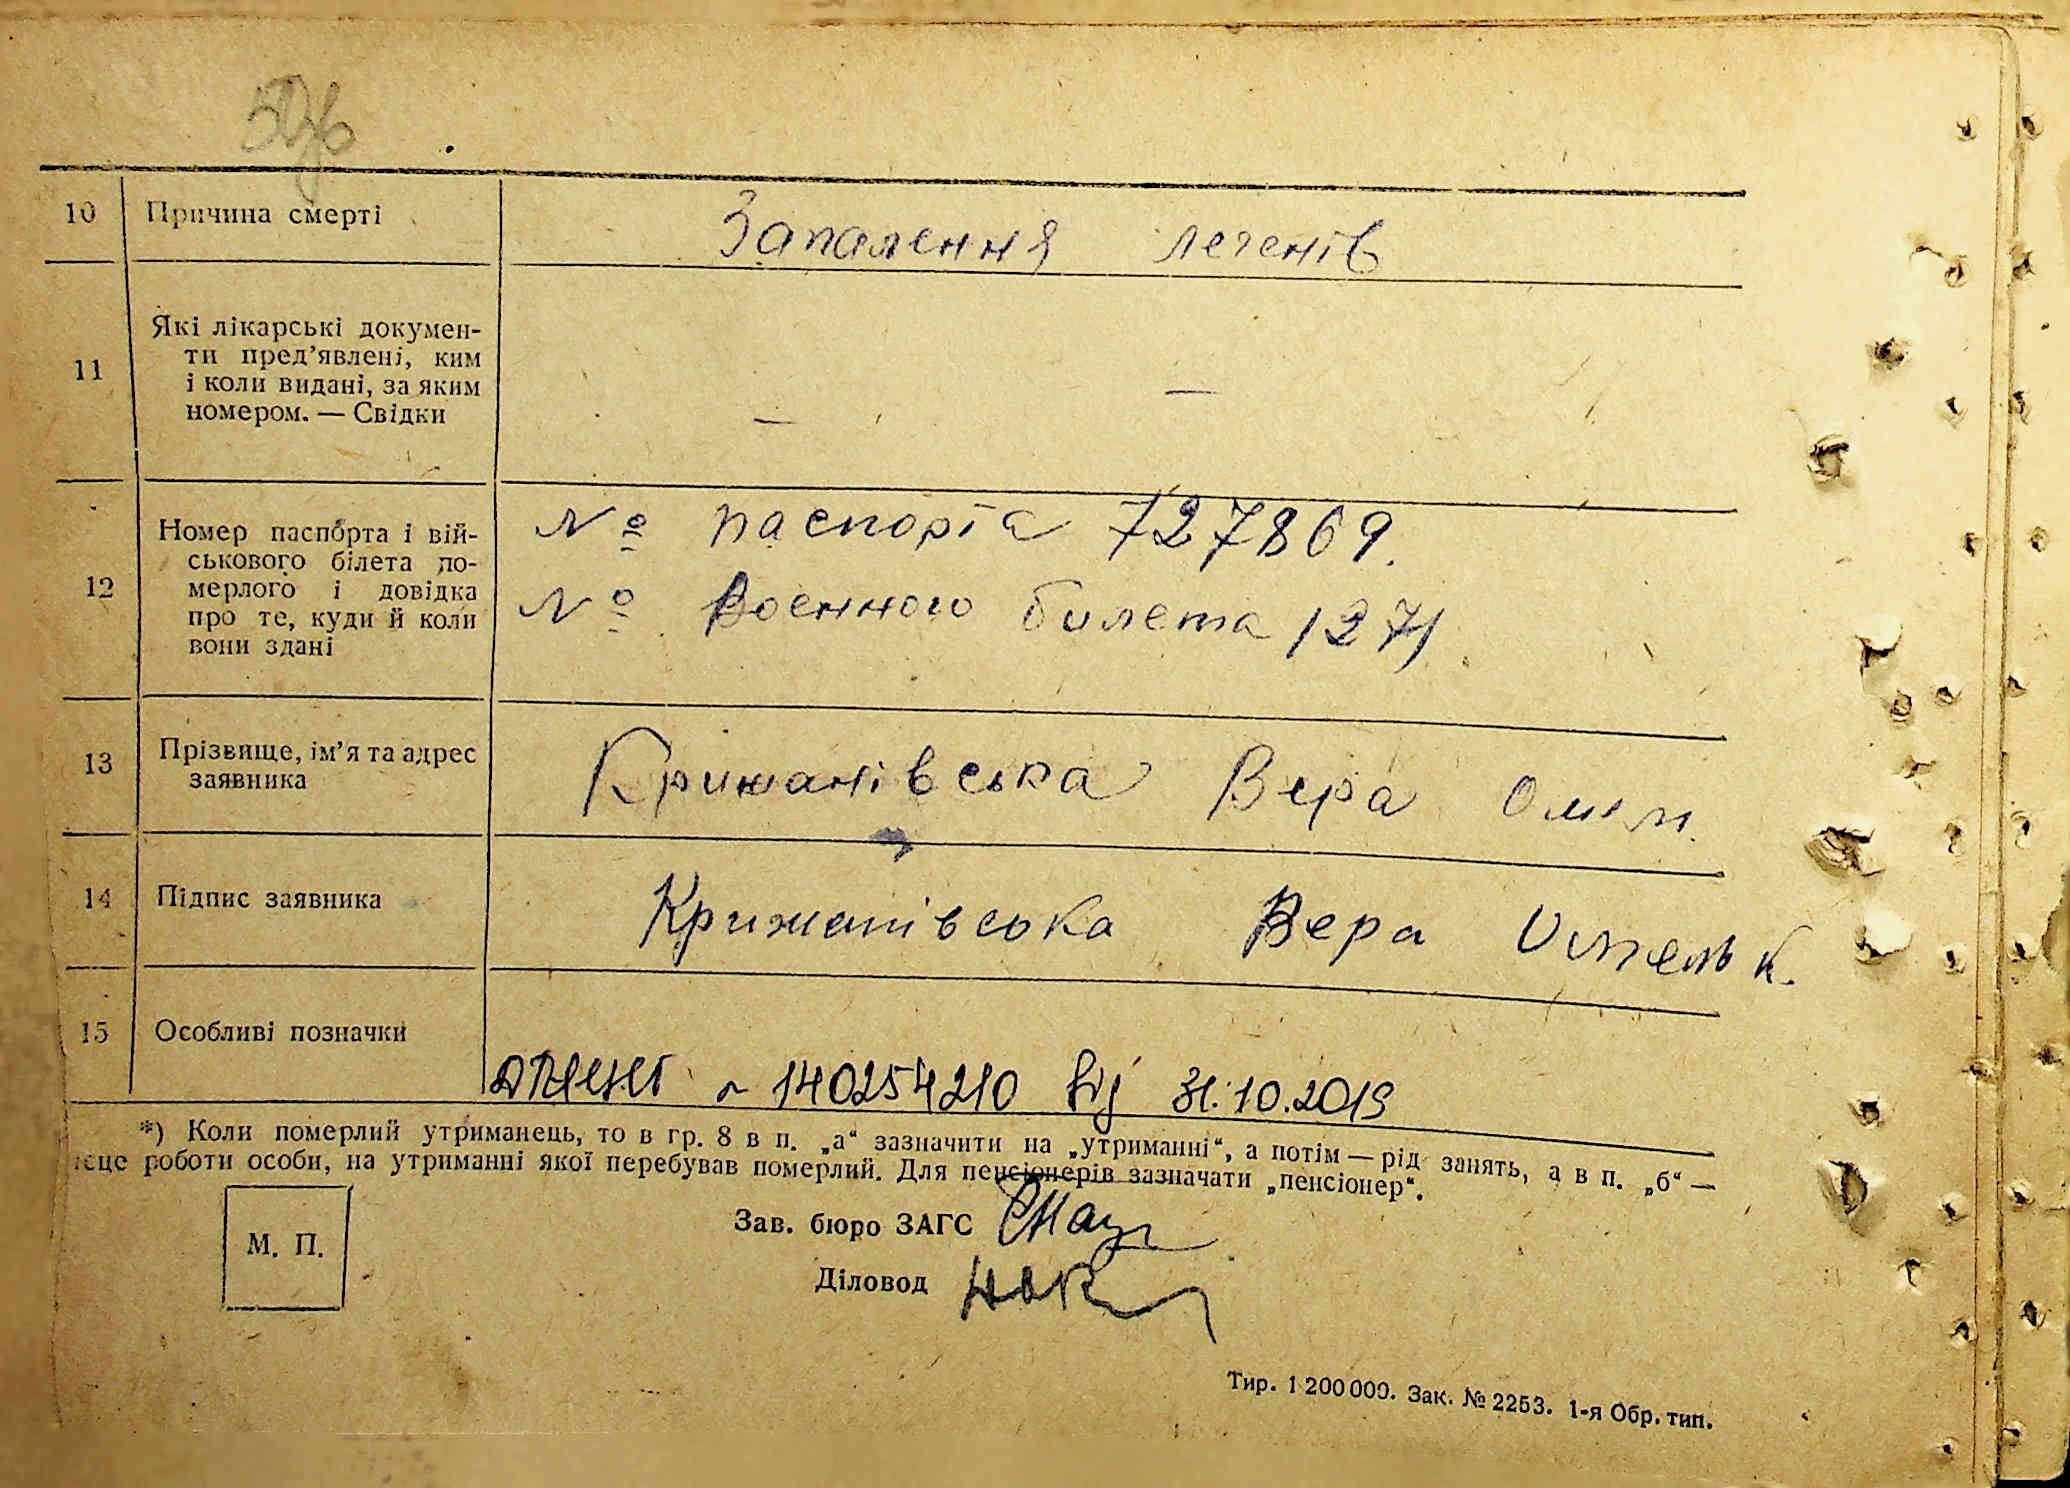 10 Причина смерті Запалення легенів
11 Які лікарські докумен-
ти пред’явлені, ким
і коли видані, за яким
номером. — Свідки — —
12 Номер паспорта і вій-
ськового білета по-
мерлого і довідка
про те, куди й коли
вони здані
№ паспорта 727869.
№ Военного билета 1271
13 Прізвище, ім’я та адрес
заявника
Крижанівська Вера
14 Підпис заявника Крижанівська Вера
15 Особливі позначки
140254210 від 31.10.2019
*) Коли померлий утриманець, то в гр. 8 в п. „а“ зазначити на „утриманні“, а потім — рід занять, а в п. „б“ —
це роботи особи, на утриманні якої перебував померлий. Для пенсіонерів зазначати „пенсіонер“.
М. П.
Зав. бюро ЗАГС
Діловод
Тир. 1 200 000. Зак. № 2253. 1-я Обр. тип.